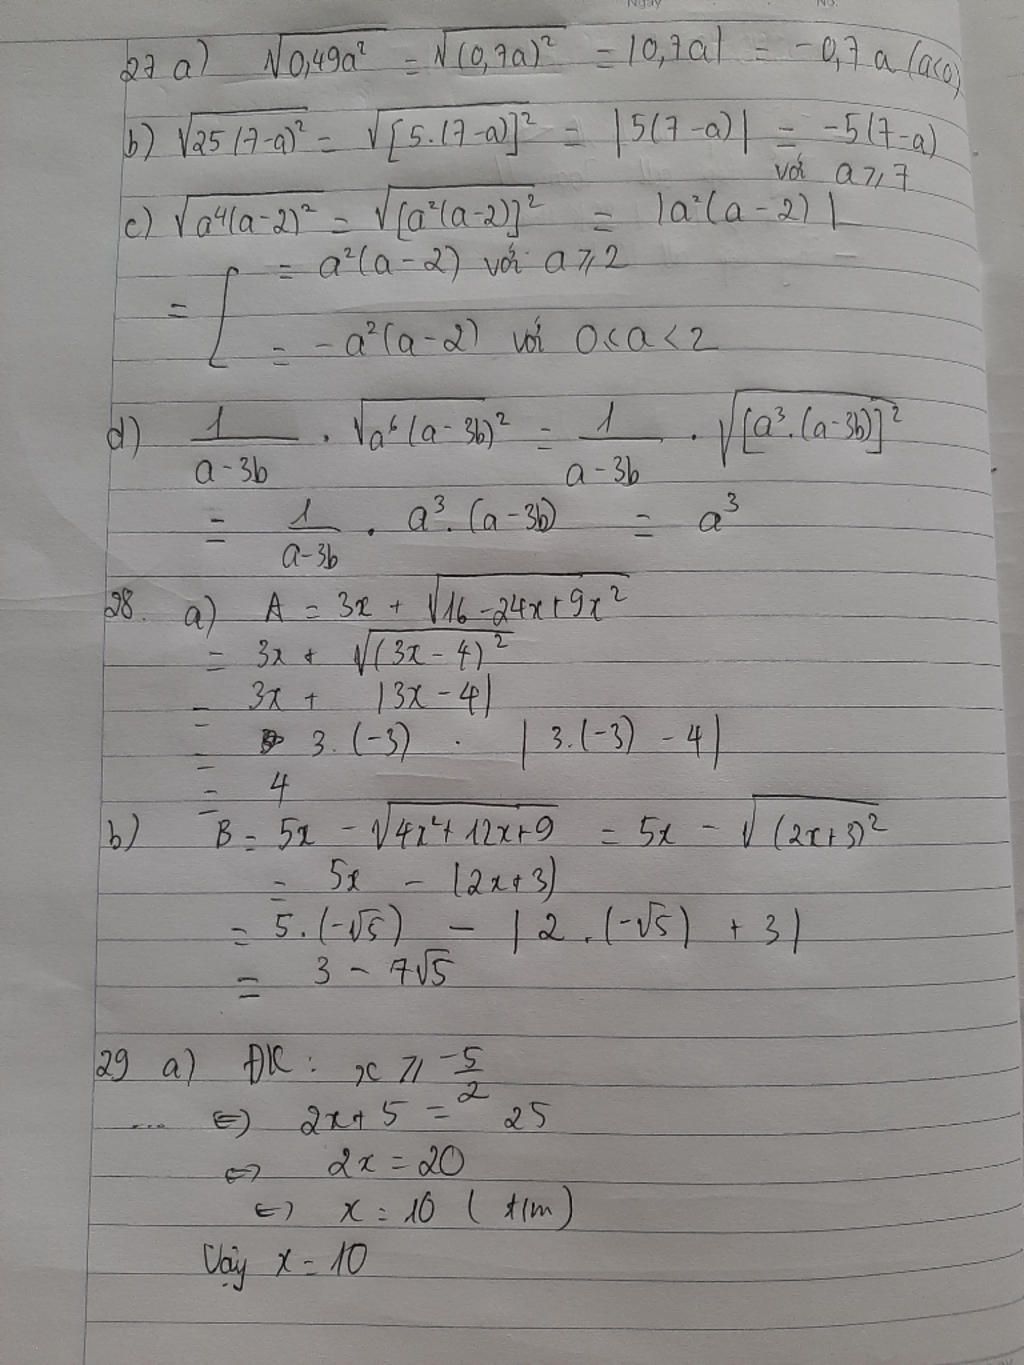 Ngày No.
27 a) √0,49a² = √(0,7a)² = |0,7a| = -0,7a (a<0)
b) √25(7-a)² = √[5.(7-a)]² = |5(7-a)| = -5(7-a)
với a ⩾ 7
c) √a⁴(a-2)² = √[a²(a-2)]² = |a²(a-2)|
= [ = a²(a-2) với a ⩾ 2
= -a²(a-2) với 0<a<2
d) 1/(a-3b) . √a⁶(a-3b)² = 1/(a-3b) . √[a³.(a-3b)]²
= 1/(a-3b) . a³.(a-3b) = a³
28. a) A = 3x + √16-24x+9x²
= 3x + √(3x-4)²
= 3x + |3x-4|
= 3.(-3) . |3.(-3) - 4|
= 4
b) B = 5x - √4x²+12x+9 = 5x - √(2x+3)²
= 5x - |2x+3|
= 5.(-√5) - |2.(-√5) + 3|
= 3 - 7√5
29 a) ĐK: x ⩾ -5/2
... ⇔ 2x+5 = 25
⇔ 2x = 20
⇔ x = 10 (t/m)
Vậy x = 10